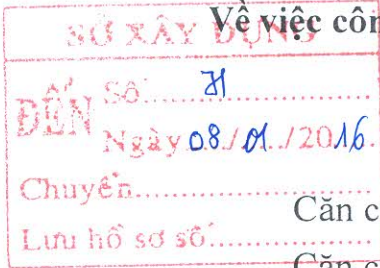 Về việc côn
SỞ XÂY DỰNG
ĐẾN
Số:
Ngày 08/01/2016
Chuyển
Căn c
Lưu hồ sơ số
Căn c